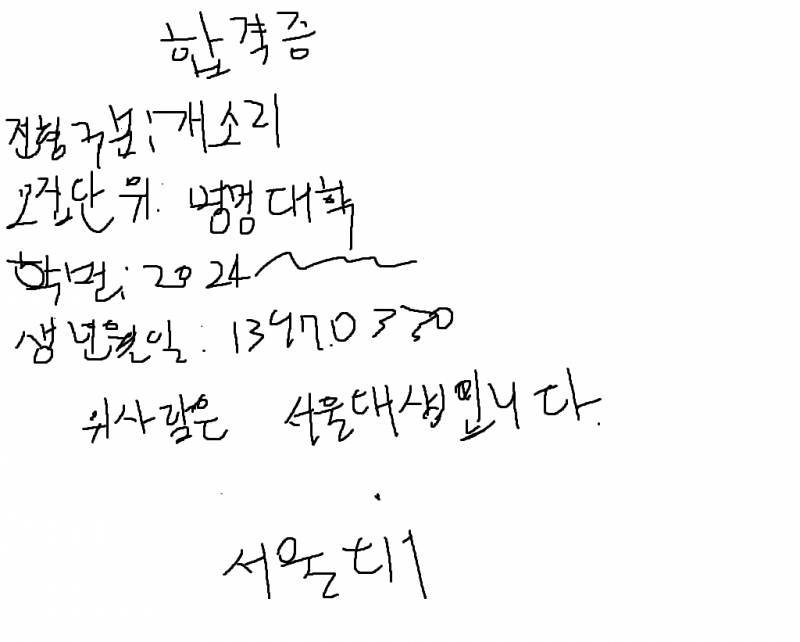 합격증
전형구분: 개소리
모집단위: 멍멍대학
학번: 2024
생년월일: 13970330
위사람은 서울대생입니다.
서울대